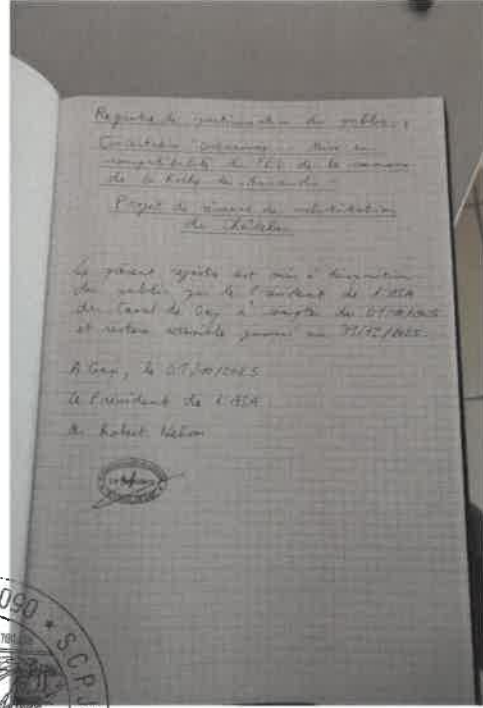 Registre de participation du public :
Concertation commune - Mise en
compatibilité du PLU de la commune
de la
Projet de réserve de substitution
du
Le présent registre est mis à disposition
du public par le Président de l'ASA
du Canal de Gap à compter du 07/10/2025
et restera accessible jusqu'au 31/12/2025.
A Gap, le 07/10/2025
Le Président de l'ASA
Mr Robert
090 * SCP